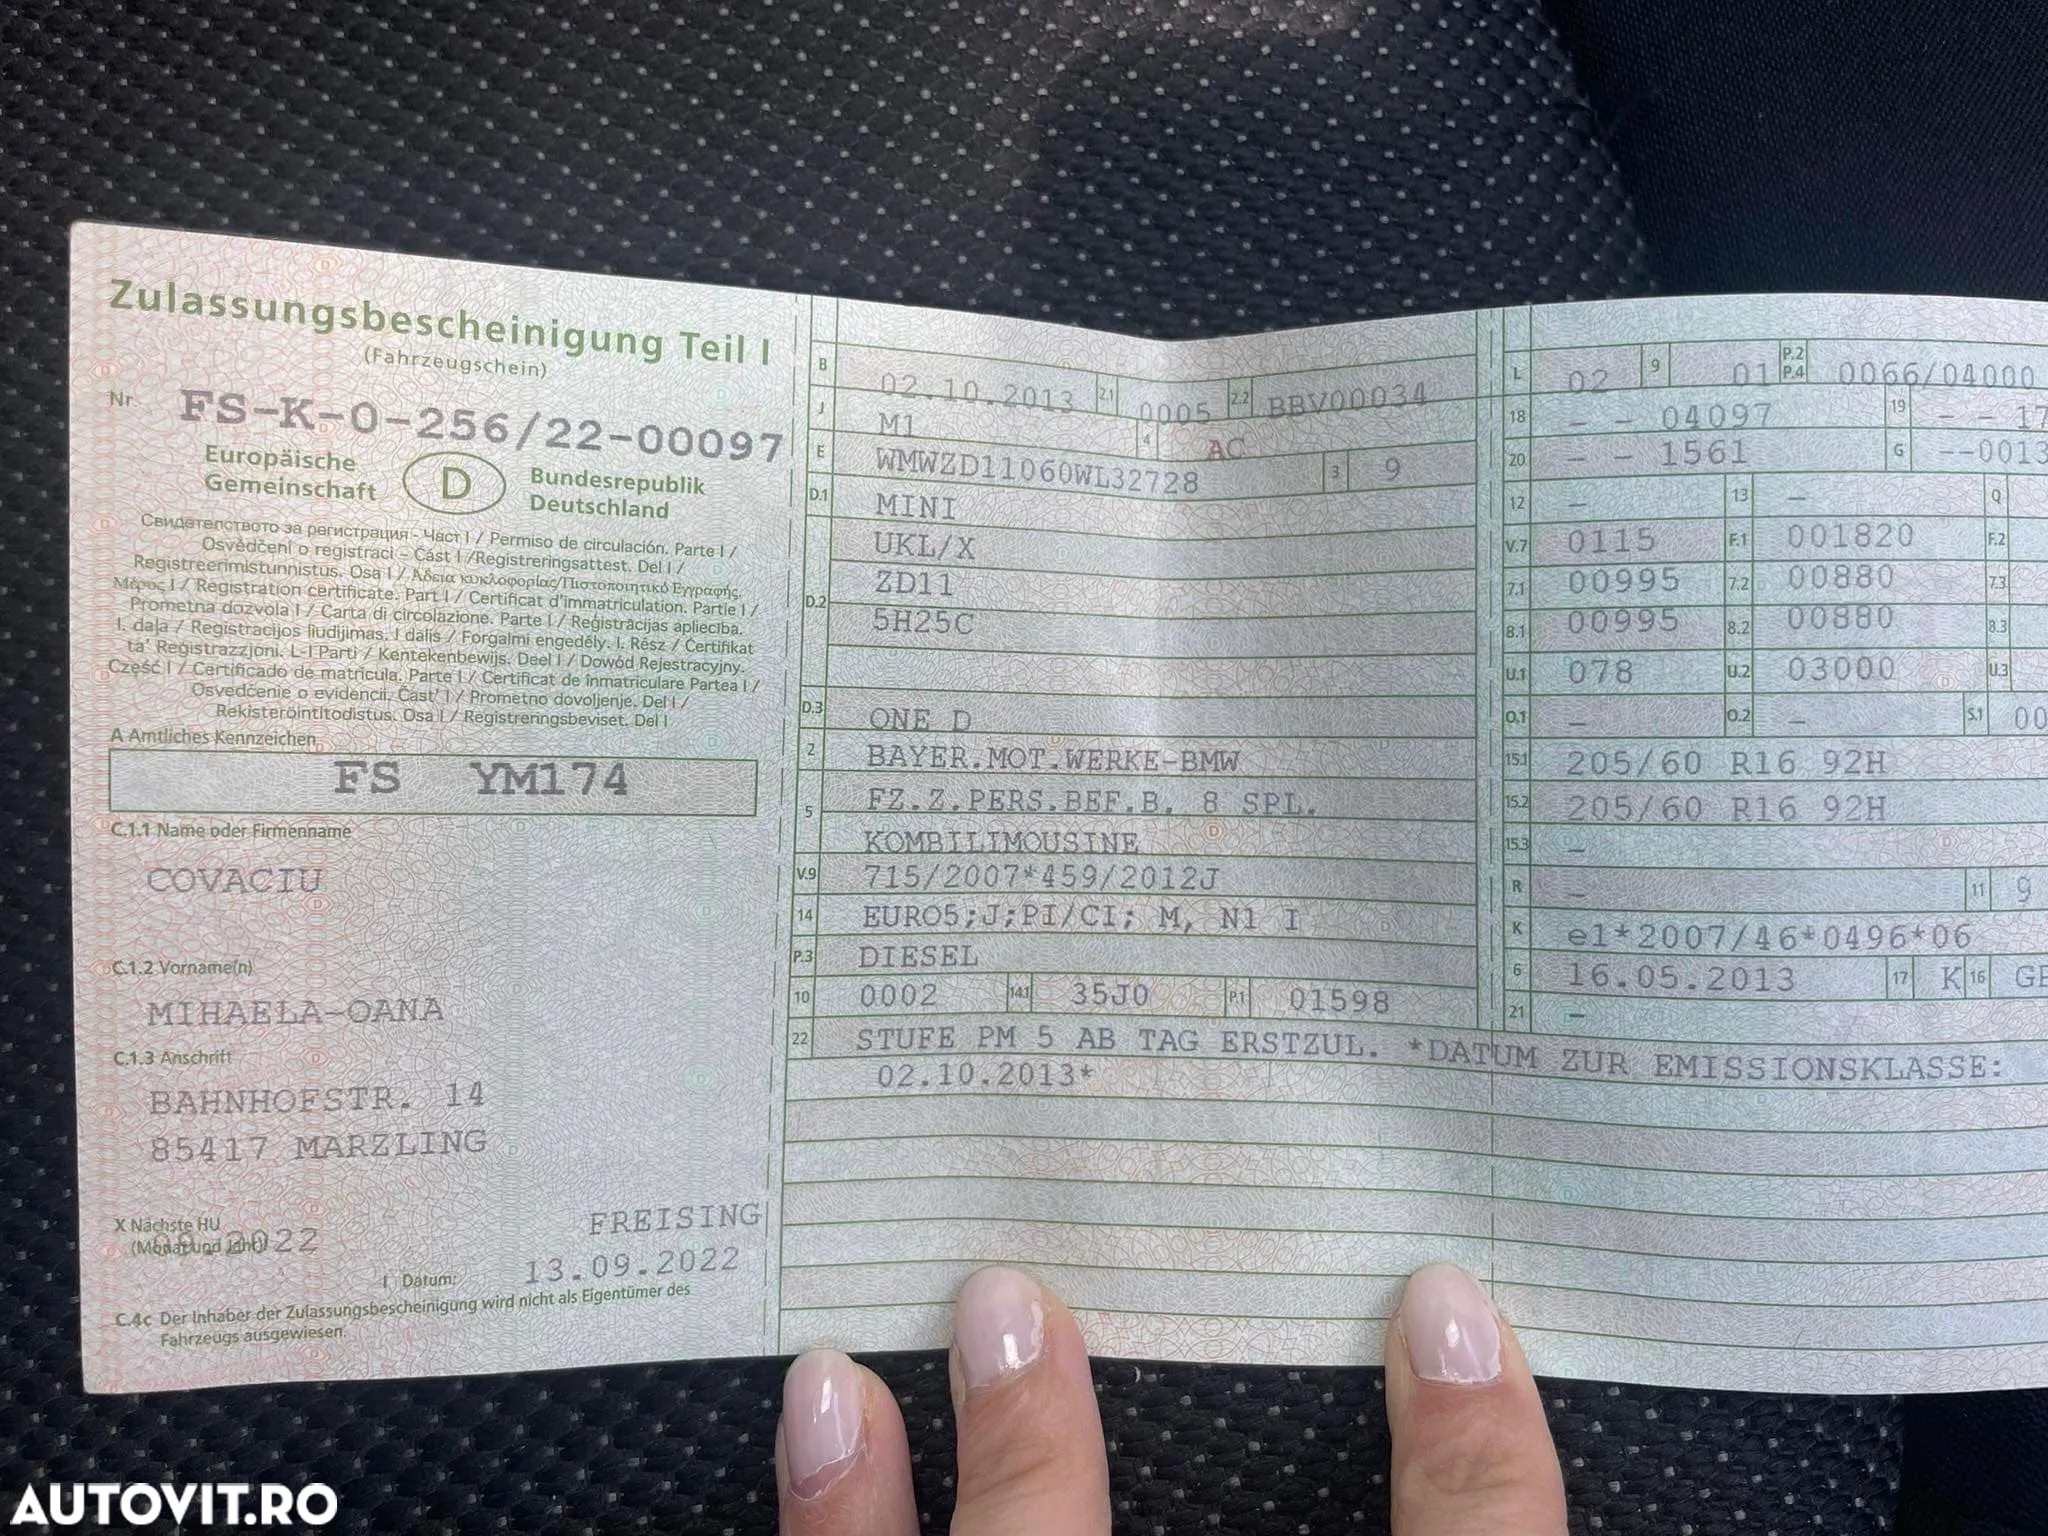 Zulassungsbescheinigung Teil I
(Fahrzeugschein)
Nr. FS-K-0-256/22-00097
Europäische Gemeinschaft
D
Bundesrepublik Deutschland
Свидетелство за регистрация - Част I / Permiso de circulación. Parte I /
Osvědčení o registraci – Část I /Registreringsattest. Del I /
Registreerimistunnistus. Osa I / Άδεια κυκλοφορίας/Πιστοποιητικό Εγγραφής.
Μέρος I / Registration certificate. Part I / Certificat d'immatriculation. Partie I /
Prometna dozvola I / Carta di circolazione. Parte I / Reģistrācijas apliecība.
I. daļa / Registracijos liudijimas. I dalis / Forgalmi engedély. I. Rész / Ċertifikat
ta' Reġistrazzjoni. L-I Parti / Kentekenbewijs. Deel I / Dowód Rejestracyjny.
Część I / Certificado de matrícula. Parte I / Certificat de înmatriculare Partea I /
Osvedčenie o evidencii. Časť I / Prometno dovoljenje. Del I /
Rekisteröintitodistus. Osa I / Registreringsbeviset. Del I
A Amtliches Kennzeichen
FS YM174
C.1.1 Name oder Firmenname
COVACIU
C.1.2 Vorname(n)
MIHAELA-OANA
C.1.3 Anschrift
BAHNHOFSTR. 14
85417 MARZLING
X Nächste HU
(Monat und Jahr)
2022
FREISING
I Datum: 13.09.2022
C.4c Der Inhaber der Zulassungsbescheinigung wird nicht als Eigentümer des
Fahrzeugs ausgewiesen.
B 02.10.2013 2.1 0005 2.2 BBV00034
J M1 4 AC
E WMWZD11060WL32728 3 9
D.1 MINI
D.2 UKL/X
ZD11
5H25C
D.3 ONE D
2 BAYER.MOT.WERKE-BMW
5 FZ.Z.PERS.BEF.B. 8 SPL.
KOMBILIMOUSINE
V.9 715/2007*459/2012J
14 EURO5;J;PI/CI; M, N1 I
P.3 DIESEL
10 0002 14.1 35J0 P.1 01598
22 STUFE PM 5 AB TAG ERSTZUL. *DATUM ZUR EMISSIONSKLASSE:
02.10.2013*
L 02 9 01 P.2 P.4 0066/04000
18 - - 04097 19 - - 17
20 - - 1561 G --0013
12 - 13 - Q
V.7 0115 F.1 001820 F.2
7.1 00995 7.2 00880 7.3
8.1 00995 8.2 00880 8.3
U.1 078 U.2 03000 U.3
O.1 - O.2 - S.1 00
15.1 205/60 R16 92H
15.2 205/60 R16 92H
15.3 -
R - 11 9
K e1*2007/46*0496*06
6 16.05.2013 17 K 16 GE
21 -
AUTOVIT.RO